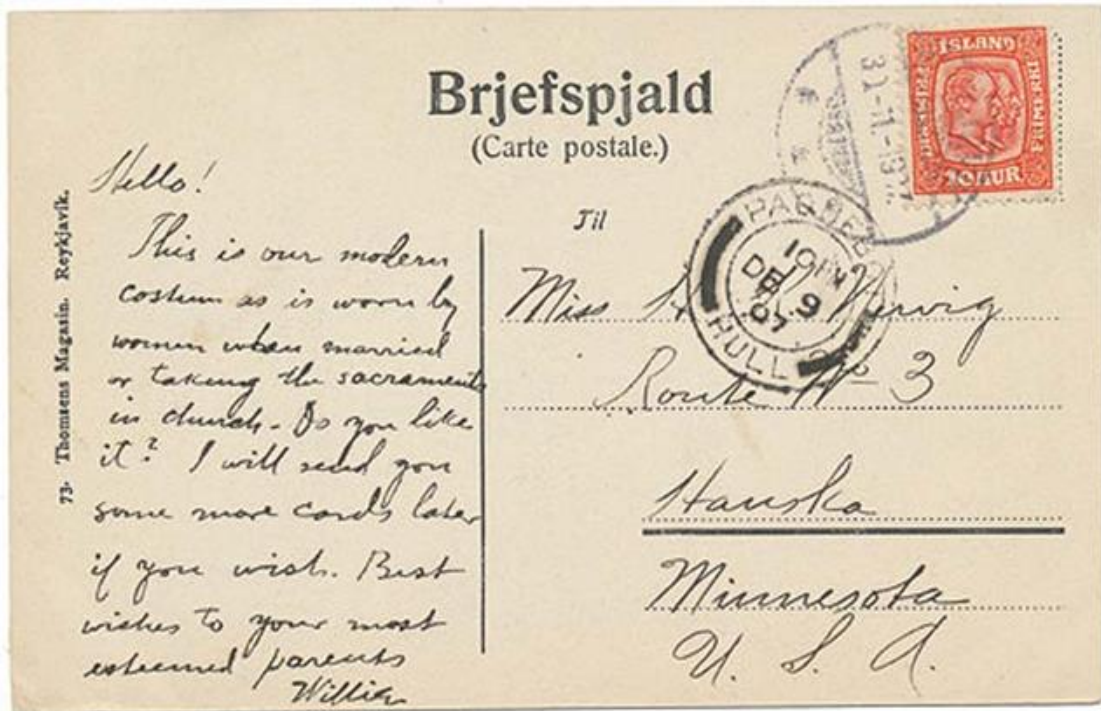 Brjefspjald
(Carte postale.)
73. Thomsens Magasin. Reykjavík.
Hello!
This is our modern
costum as is worn by
women when married
or taking the sacrament
in church. Do you like
it? I will send you
some more cards later
if you wish. Best
wishes to your most
esteemed parents
Willia
Til
Miss
Route No 3
Hanska
Minnesota
U. S. A.
ISLAND
FRIMERKI
10 AUR
30-11-1907
HULL
DE 9
07